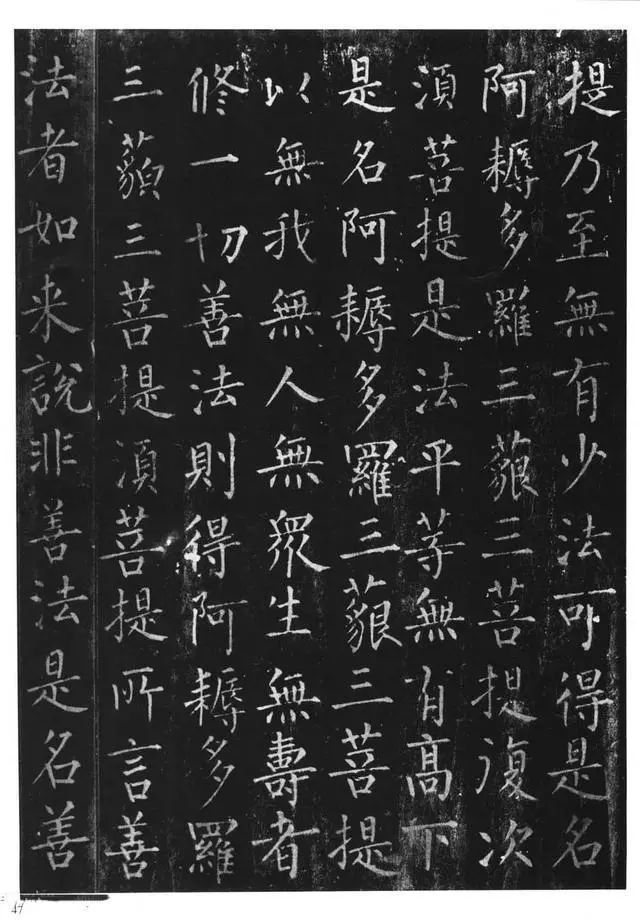 提乃至無有少法可得是名
阿耨多羅三藐三菩提復次
須菩提是法平等無有高下
是名阿耨多羅三藐三菩提
以無我無人無眾生無壽者
修一切善法則得阿耨多羅
三藐三菩提須菩提所言善
法者如来說非善法是名善
47